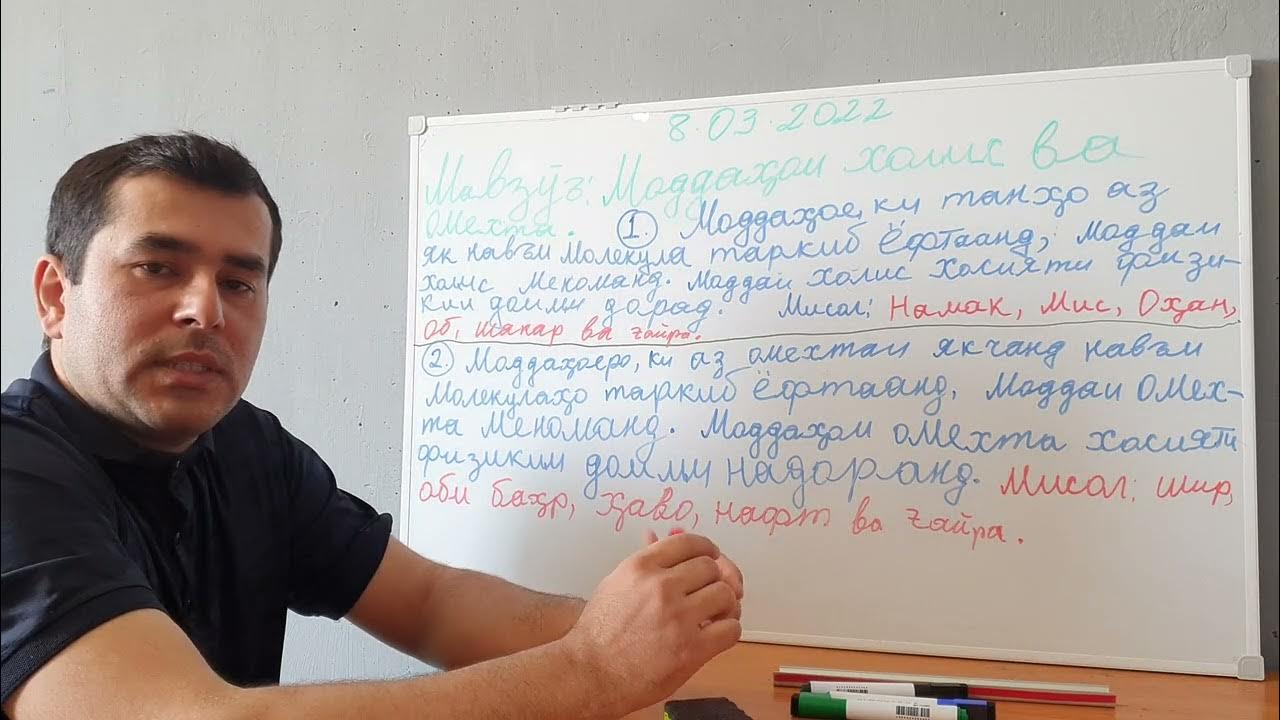 8.03.2022
Мавзӯъ: Моддаҳои холис ва
омехта. 1. Моддаҳое, ки танҳо аз
як навъи Молекула таркиб ёфтаанд, моддаи
холис меноманд. Моддаи холис хосияти физи-
кии доими дорад. Мисол: Намак, Мис, Оҳан,
об, шакар ва ғайра.
2 Моддаҳоеро, ки аз омехтаи якчанд навъи
Молекулаҳо таркиб ёфтаанд, Моддаи омех-
та меноманд. Моддаҳои омехта хосияти
физикии доими надоранд. Мисол: шир,
оби баҳр, ҳаво, нафт ва ғайра.